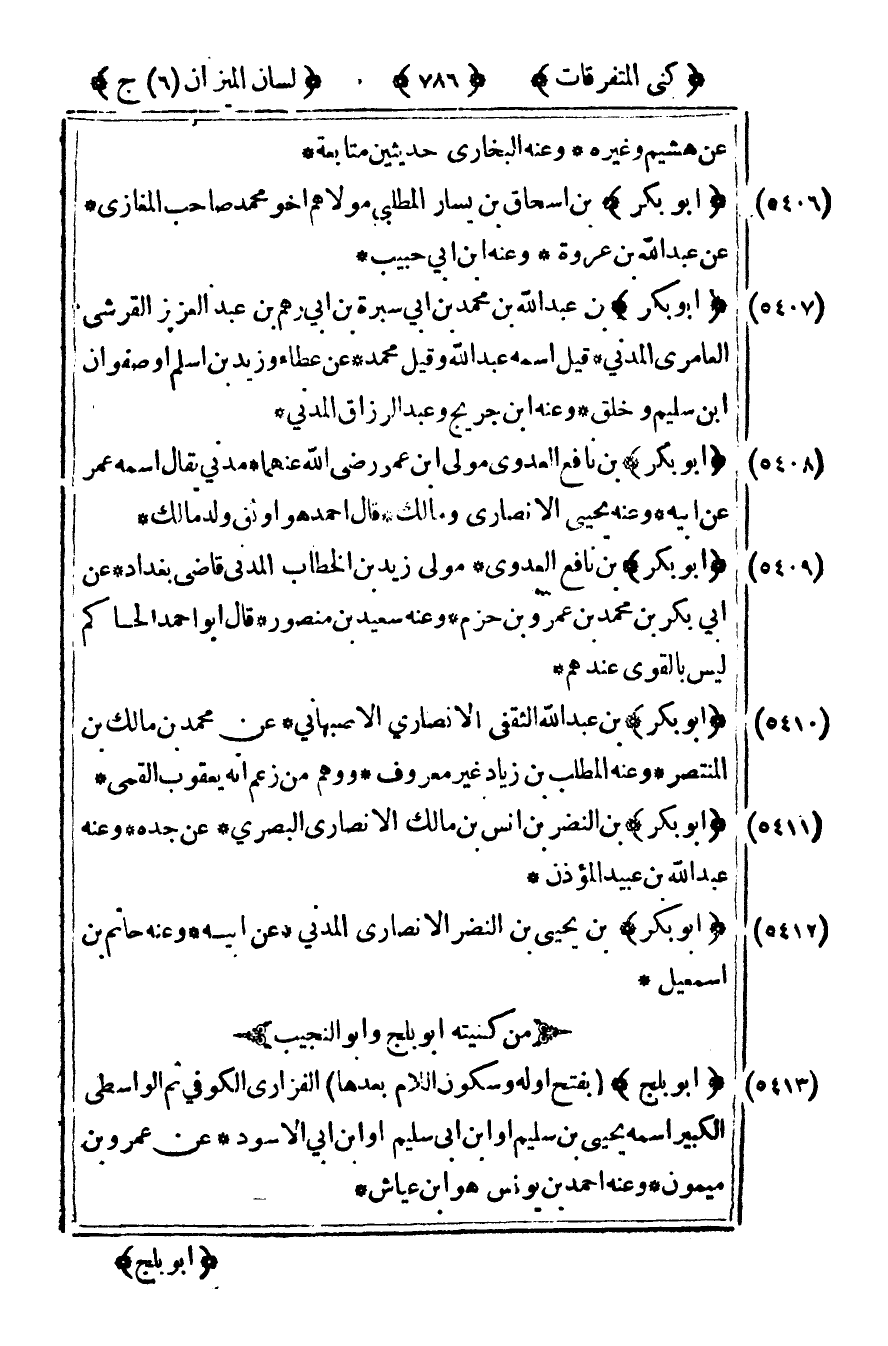 ﴿ كنى المتفرقات ﴾ ﴿ ٧٨٦ ﴾ ﴿ لسان الميزان (٦) ج ﴾
عن هشيم وغيره * وعنه البخارى حديثين متابعة *
(٥٤٠٦) ﴿ ابو بكر ﴾ بن اسحاق بن يسار المطلبي مولاهم اخو محمد صاحب المغازى *
عن عبدالله بن عروة * وعنه ابن ابي حبيب *
(٥٤٠٧) ﴿ ابو بكر ﴾ بن عبدالله بن محمد بن ابي سبرة بن ابي رهم بن عبد العزيز القرشى
العامرى المدني * قيل اسمه عبدالله وقيل محمد * عن عطاء وزيد بن اسلم او صفوان
ابن سليم و خلق * وعنه ابن جريج وعبد الرزاق المدني *
(٥٤٠٨) ﴿ ابو بكر ﴾ بن نافع العدوى مولى ابن عمر رضى الله عنهما * مدني يقال اسمه عمر
عن ابيه * وعنه يحيى الانصارى ومالك * قال احمد هو اوثق ولد مالك *
(٥٤٠٩) ﴿ ابو بكر ﴾ بن نافع العدوى * مولى زيد بن الخطاب المدنى قاضى بغداد * عن
ابي بكر بن محمد بن عمرو بن حزم * وعنه سعيد بن منصور * قال ابو احمد الحاكم
ليس بالقوى عندهم *
(٥٤١٠) ﴿ ابو بكر ﴾ بن عبدالله الثقفى الانصاري الاصبهاني * عن محمد بن مالك بن
المنتصر * وعنه المطلب بن زياد غير معروف * ووهم من زعم انه يعقوب القمى *
(٥٤١١) ﴿ ابو بكر ﴾ بن النضر بن انس بن مالك الانصارى البصري * عن جده * وعنه
عبدالله بن عبيد المؤذن *
(٥٤١٢) ﴿ ابو بكر ﴾ بن يحيى بن النضر الانصارى المدني * عن ابيه * وعنه حاتم بن
اسمعيل *
﴿ من كنيته ابو بلج وابو النجيب ﴾
(٥٤١٣) ﴿ ابو بلج ﴾ (بفتح اوله وسكون اللام بعدها) الفزارى الكوفي ثم الواسطى
الكبير اسمه يحيى بن سليم او ابن ابى سليم او ابن ابي الاسود * عن عمرو بن
ميمون * وعنه احمد بن يونس هو ابن عياش *
﴿ ابو بلج ﴾